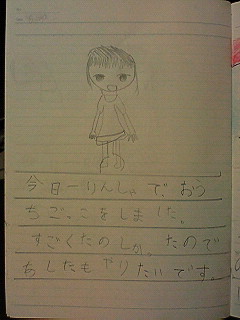 今日一りんしゃで、おう
ちごっこをしました。
すごくたのしかったので
あしたもやりたいです。